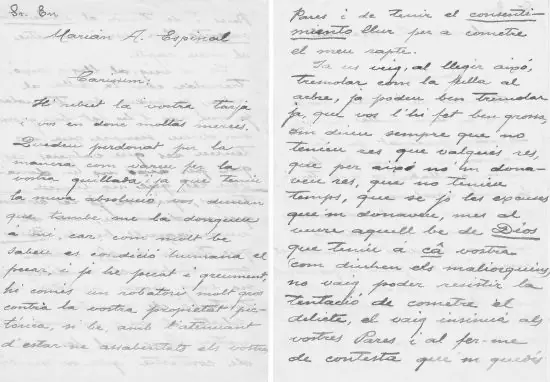 Sr. En
Marián A. Espinal
Caríssim:
He rebut la vostra tarja
i vos en donc moltas merces.
Quedeu perdonat per la
manera com vareu fer la
vostra guillada, ja que teniu
la meva absolució, vos deman
que també me la dongueu
a mi, car, com molt be
sabeu es condició humana el
pecar, i jo he pecat i greument,
hi comís un robatori molt gros
contra la vostra propietat pic-
tórica, si be, amb l'atenuant
d'estar ne assabentats els vostres
Pares i de tenir el consenti-
miento llur per a cometre
el meu rapte.
Ja us veig, al llegir això,
tremolar com la fulla al
arbre, ja podeu ben tremolar
ja, que vos l'he fet ben grossa,
em dieu sempre que no
teníeu res que valgués res,
que per això no m dona-
veu res, que no teníeu
temps, que se jo les excuses
que'm donaveu, mes al
veure aquell be de Dios
que teníu a câ vostra
com diuhen els mallorquins,
no vaig poder resistir la
tentació de cometre el
delicte, el vaig insinuá als
vostres Pares i al fer-me
de contesta que'm quedés